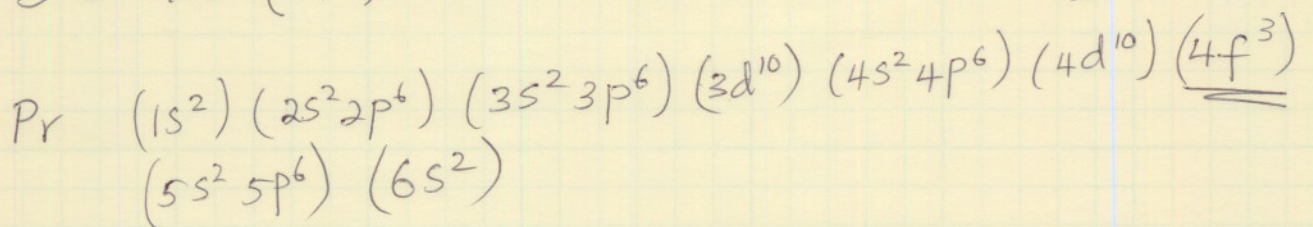 Pr (1s²) (2s² 2p⁶) (3s² 3p⁶) (3d¹⁰) (4s² 4p⁶) (4d¹⁰) (4f³)
(5s² 5p⁶) (6s²)